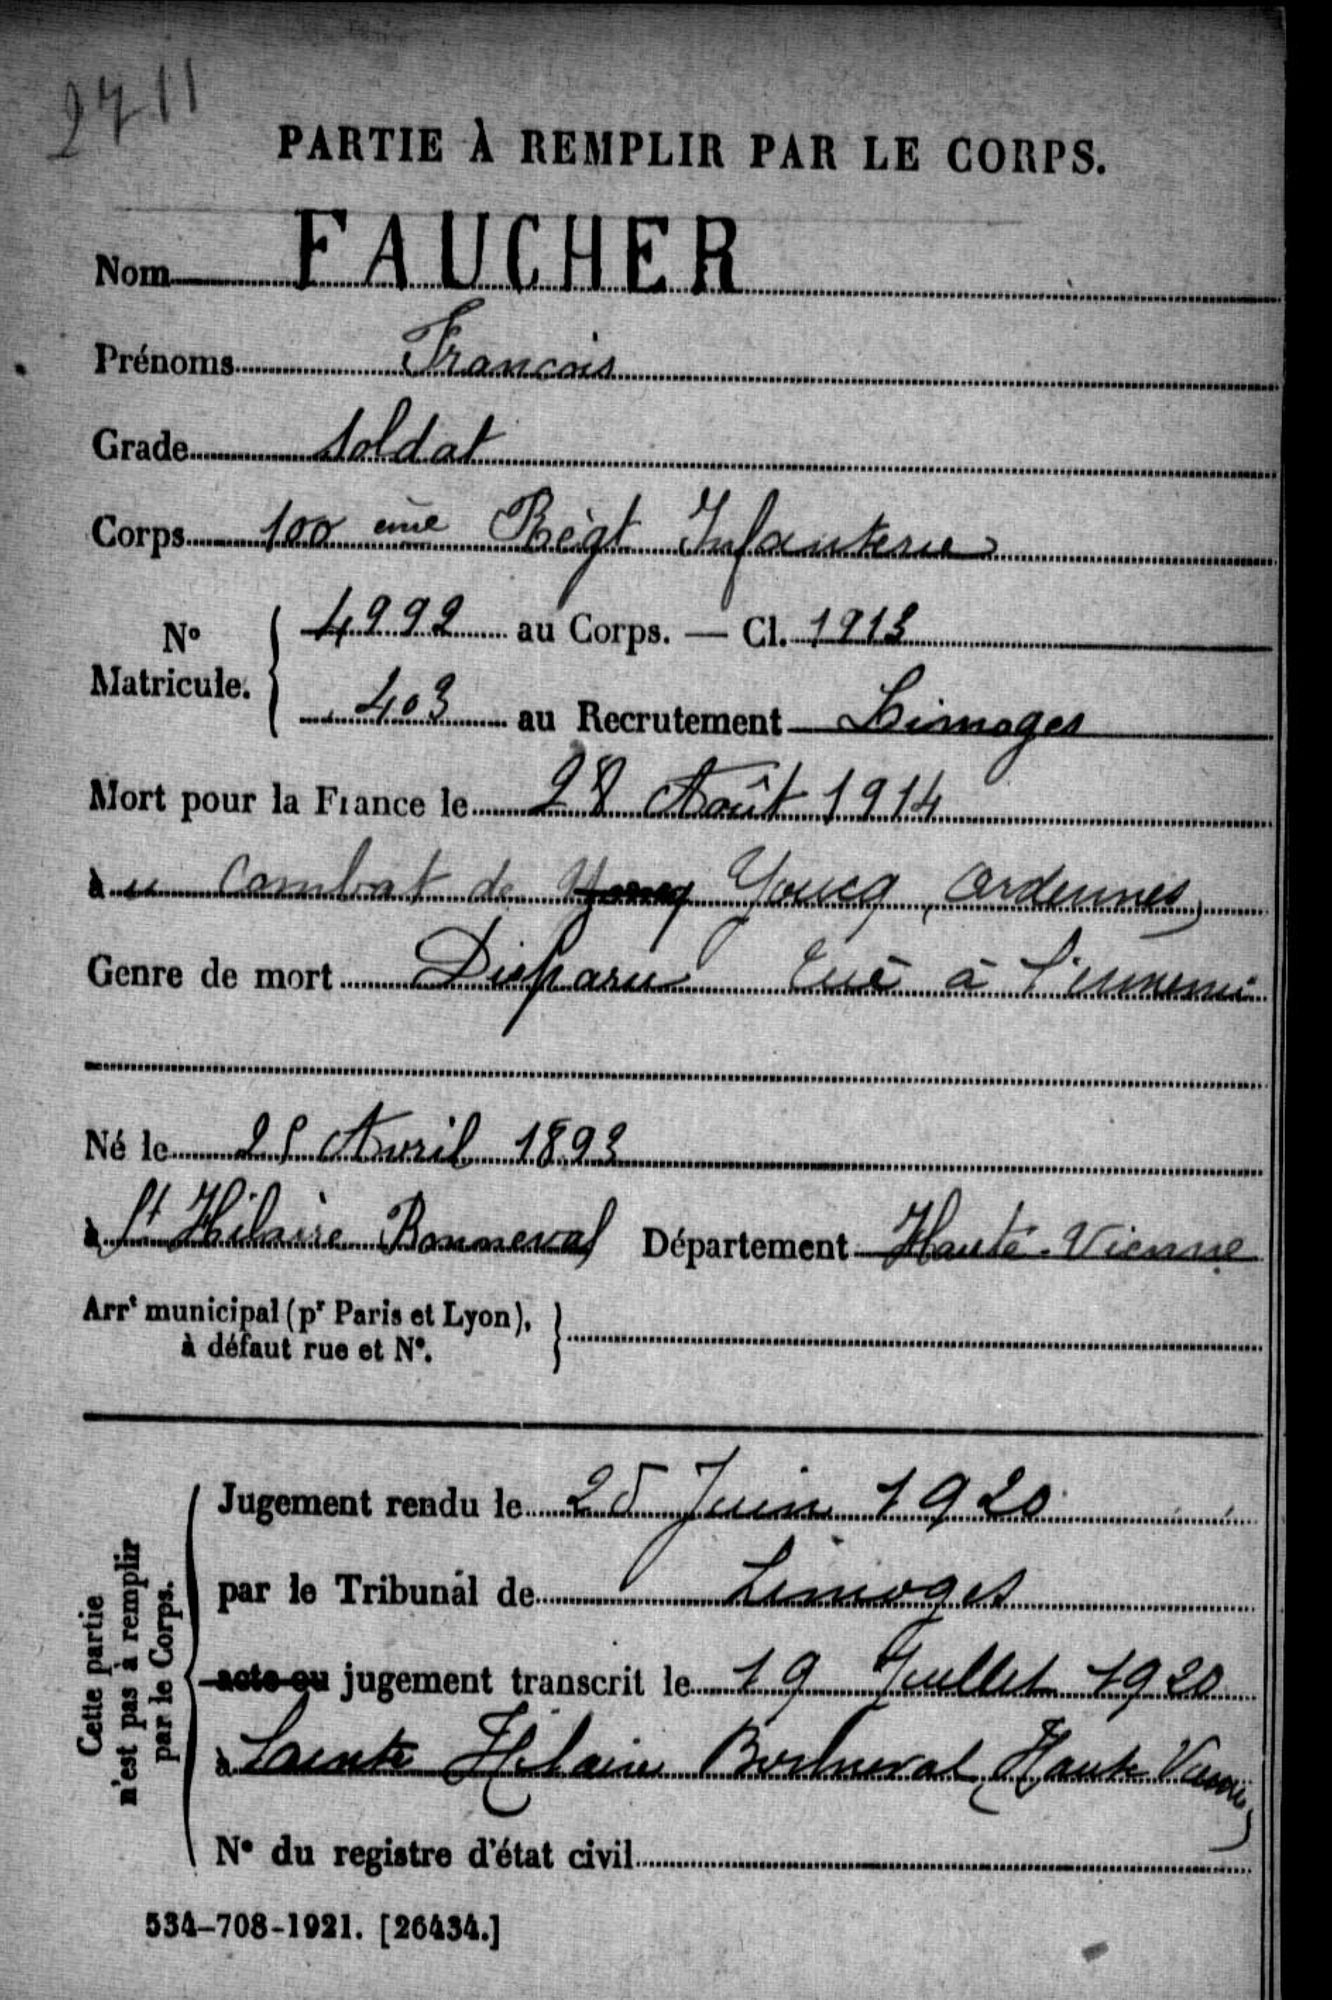 2711
PARTIE À REMPLIR PAR LE CORPS.
Nom FAUCHER
Prénoms Francois
Grade soldat
Corps 100 eme Régt Infanterie
N° Matricule. { 4992 au Corps. — Cl. 1913
403 au Recrutement Limoges
Mort pour la France le 28 Août 1914
au combat de Yoncq Yoncq (Ardennes)
Genre de mort Disparu tué à l'ennemi
Né le 25 Avril 1893
à St Hilaire Bonneval Département Haute-Vienne
Arrt municipal (pr Paris et Lyon),
à défaut rue et N°. }
Cette partie
n'est pas à remplir
par le Corps.
Jugement rendu le 25 Juin 1920
par le Tribunal de Limoges
acte ou jugement transcrit le 19 Juillet 1920
à Sainte Hilaire Bonneval (Haute Vienne)
N° du registre d'état civil
534-708-1921. [26434.]